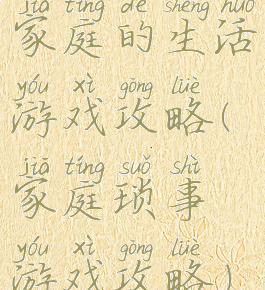 jiā tíng de shēng huó
家庭的生活
yóu xì gōng lüè
游戏攻略(
jiā tíng suǒ shì
家庭琐事
yóu xì gōng lüè
游戏攻略)